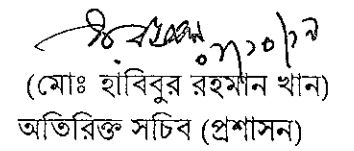 (মোঃ হাবিবুর রহমান খান)
অতিরিক্ত সচিব (প্রশাসন)